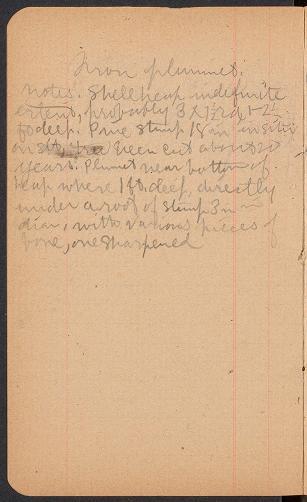 Iron plummet.
Notes. Shell heap indefinite
extent, probably 3 x 1½ rd, 1-2½
ft deep. Pine stump 18 in in situ
on it, tree been cut about 20
years. Plumet near bottom of
heap where 1 ft. deep, directly
under a root of stump 3 in in
diam, with various pieces of
bone, one sharpened